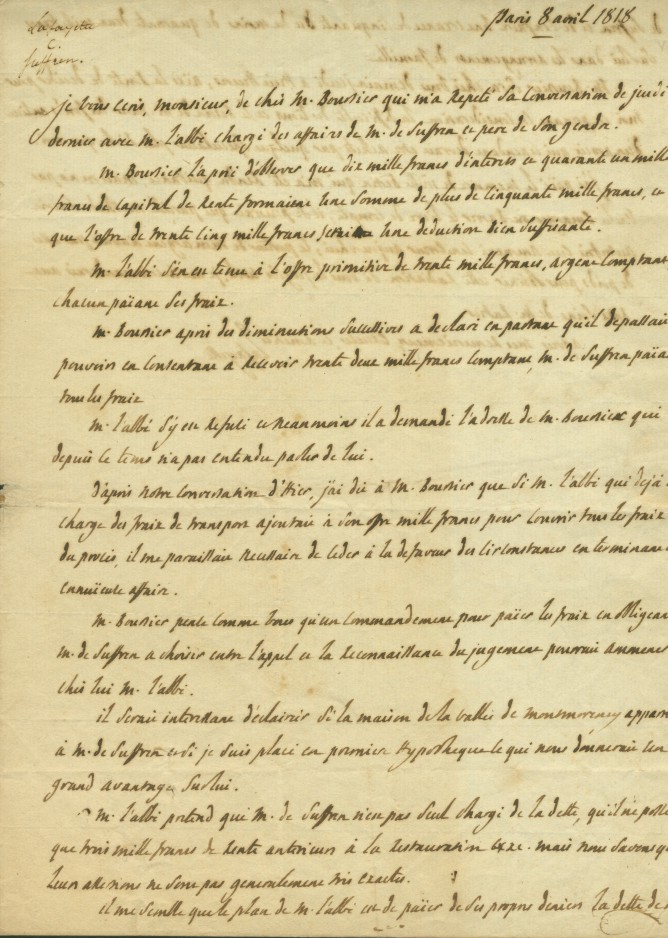 Lafayette
C.
Suffren.
Paris 8 avril 1818
je vous ecris, monsieur, de chés M. Boursier qui m'a repeté sa conversation de jeudi
dernier avec m. l'abbé chargé des affaires de M. de Suffren et pere de son gendre.
M. Boursier l'a prié d'observer que dix mille francs d'interets et quarante un mille
francs de capital de rente formaient une somme de plus de cinquante mille francs, et
que l'offre de trente cinq mille francs serait une deduction bien suffisante.
M. l'abbé s'en est tenu à l'offre primitive de trente mille francs, argent comptant
chacun païant ses fraix.
M. Boursier après des diminutions successives a declaré en partant qu'il depassait
pouvoirs en consentant à recevoir trente deux mille francs comptant, M. de Suffren païant
tous les fraix
M. l'abbé s'y est refusé et neanmoins il a demandé l'adresse de M. Boursier qui
depuis ce tems n'a pas entendu parler de lui.
d'après notre conversation d'hier, j'ai dit à M. Boursier que si M. l'abbé qui dejà
charge des fraix de transport ajoutait à son offre mille francs pour couvrir tous les fraix
du procès, il me paraissait necessaire de ceder à la defaveur des circonstances en terminant
ennuieuse affaire.
M. Boursier pense comme vous qu'un commandement pour païer les fraix en obligeant
M. de Suffren a choisir entre l'appel et la reconnaissance du jugement pourrait ammener
chés lui M. l'abbé.
il serait interessant d'éclaircir si la maison de la vallée de Montmorency appart
à M. de Suffren et si je suis placé en premier hypotheque ce qui nous donnerait un
grand avantage sur lui.
M. l'abbé pretend que M. de Suffren n'est pas seul chargé de la dette, qu'il ne possede
que trois mille francs de rente anterieurs à la restauration &c. mais nous savons que
leurs assertions ne sont pas generalement très exactes.
il me semble que le plan de M. l'abbé est de païer de ses propres deniers la dette de